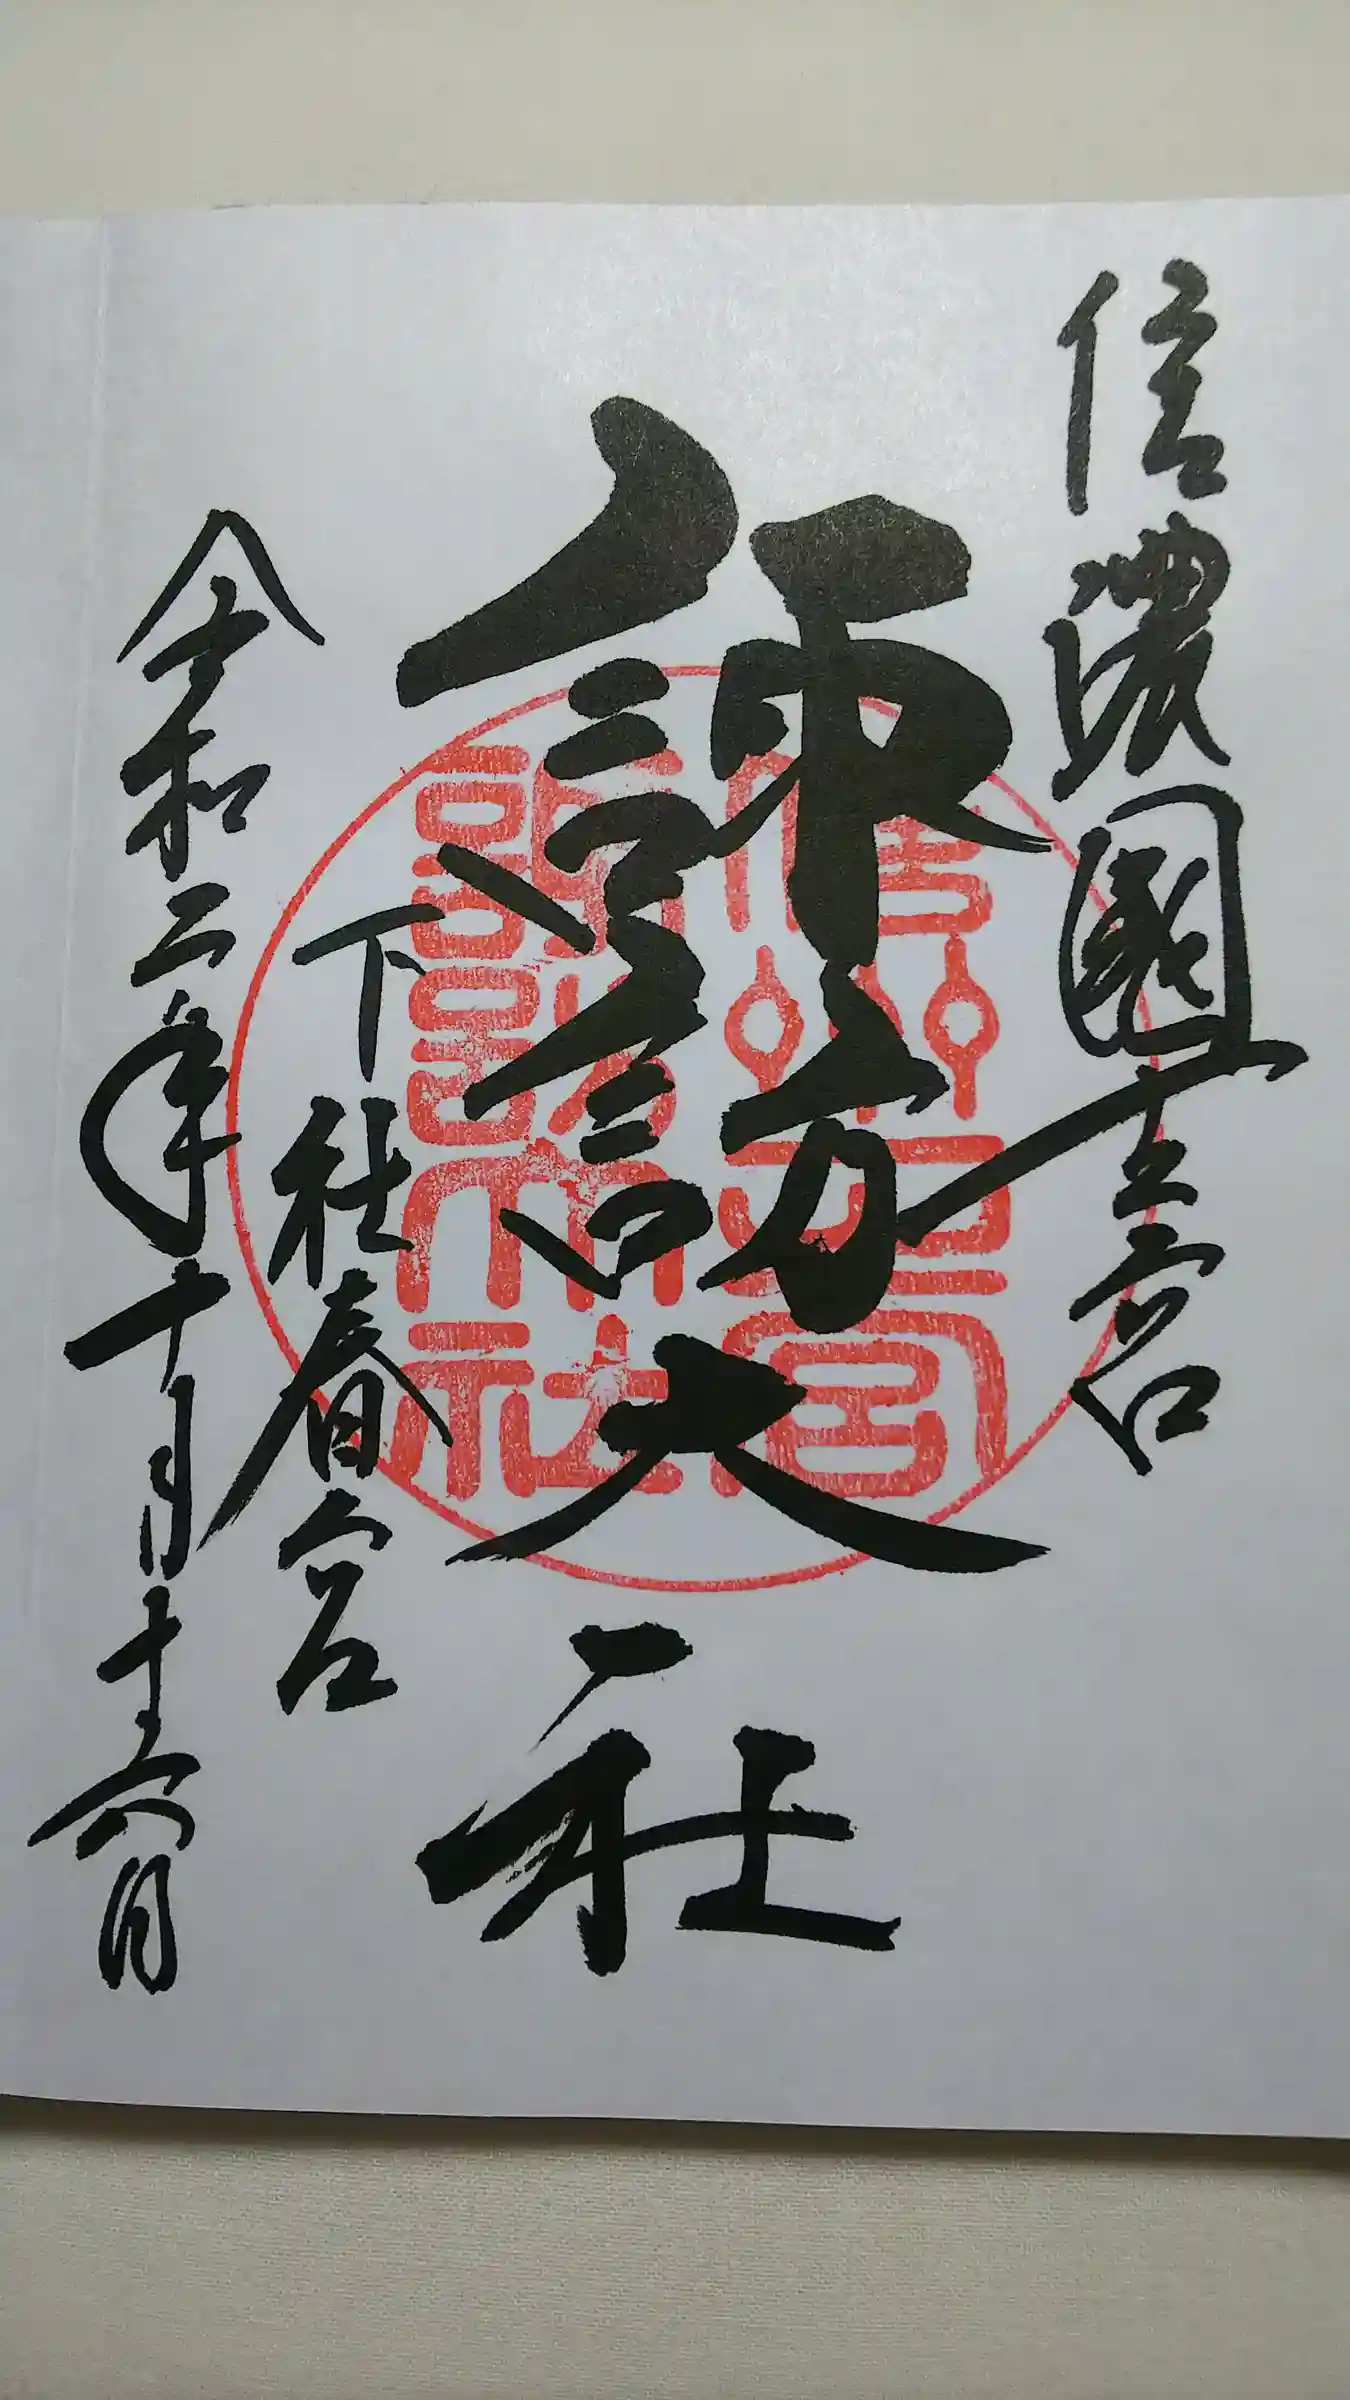 信濃國一之宮
諏訪大社
下社春宮
令和二年十月十六日
信州一之宮
諏訪大社